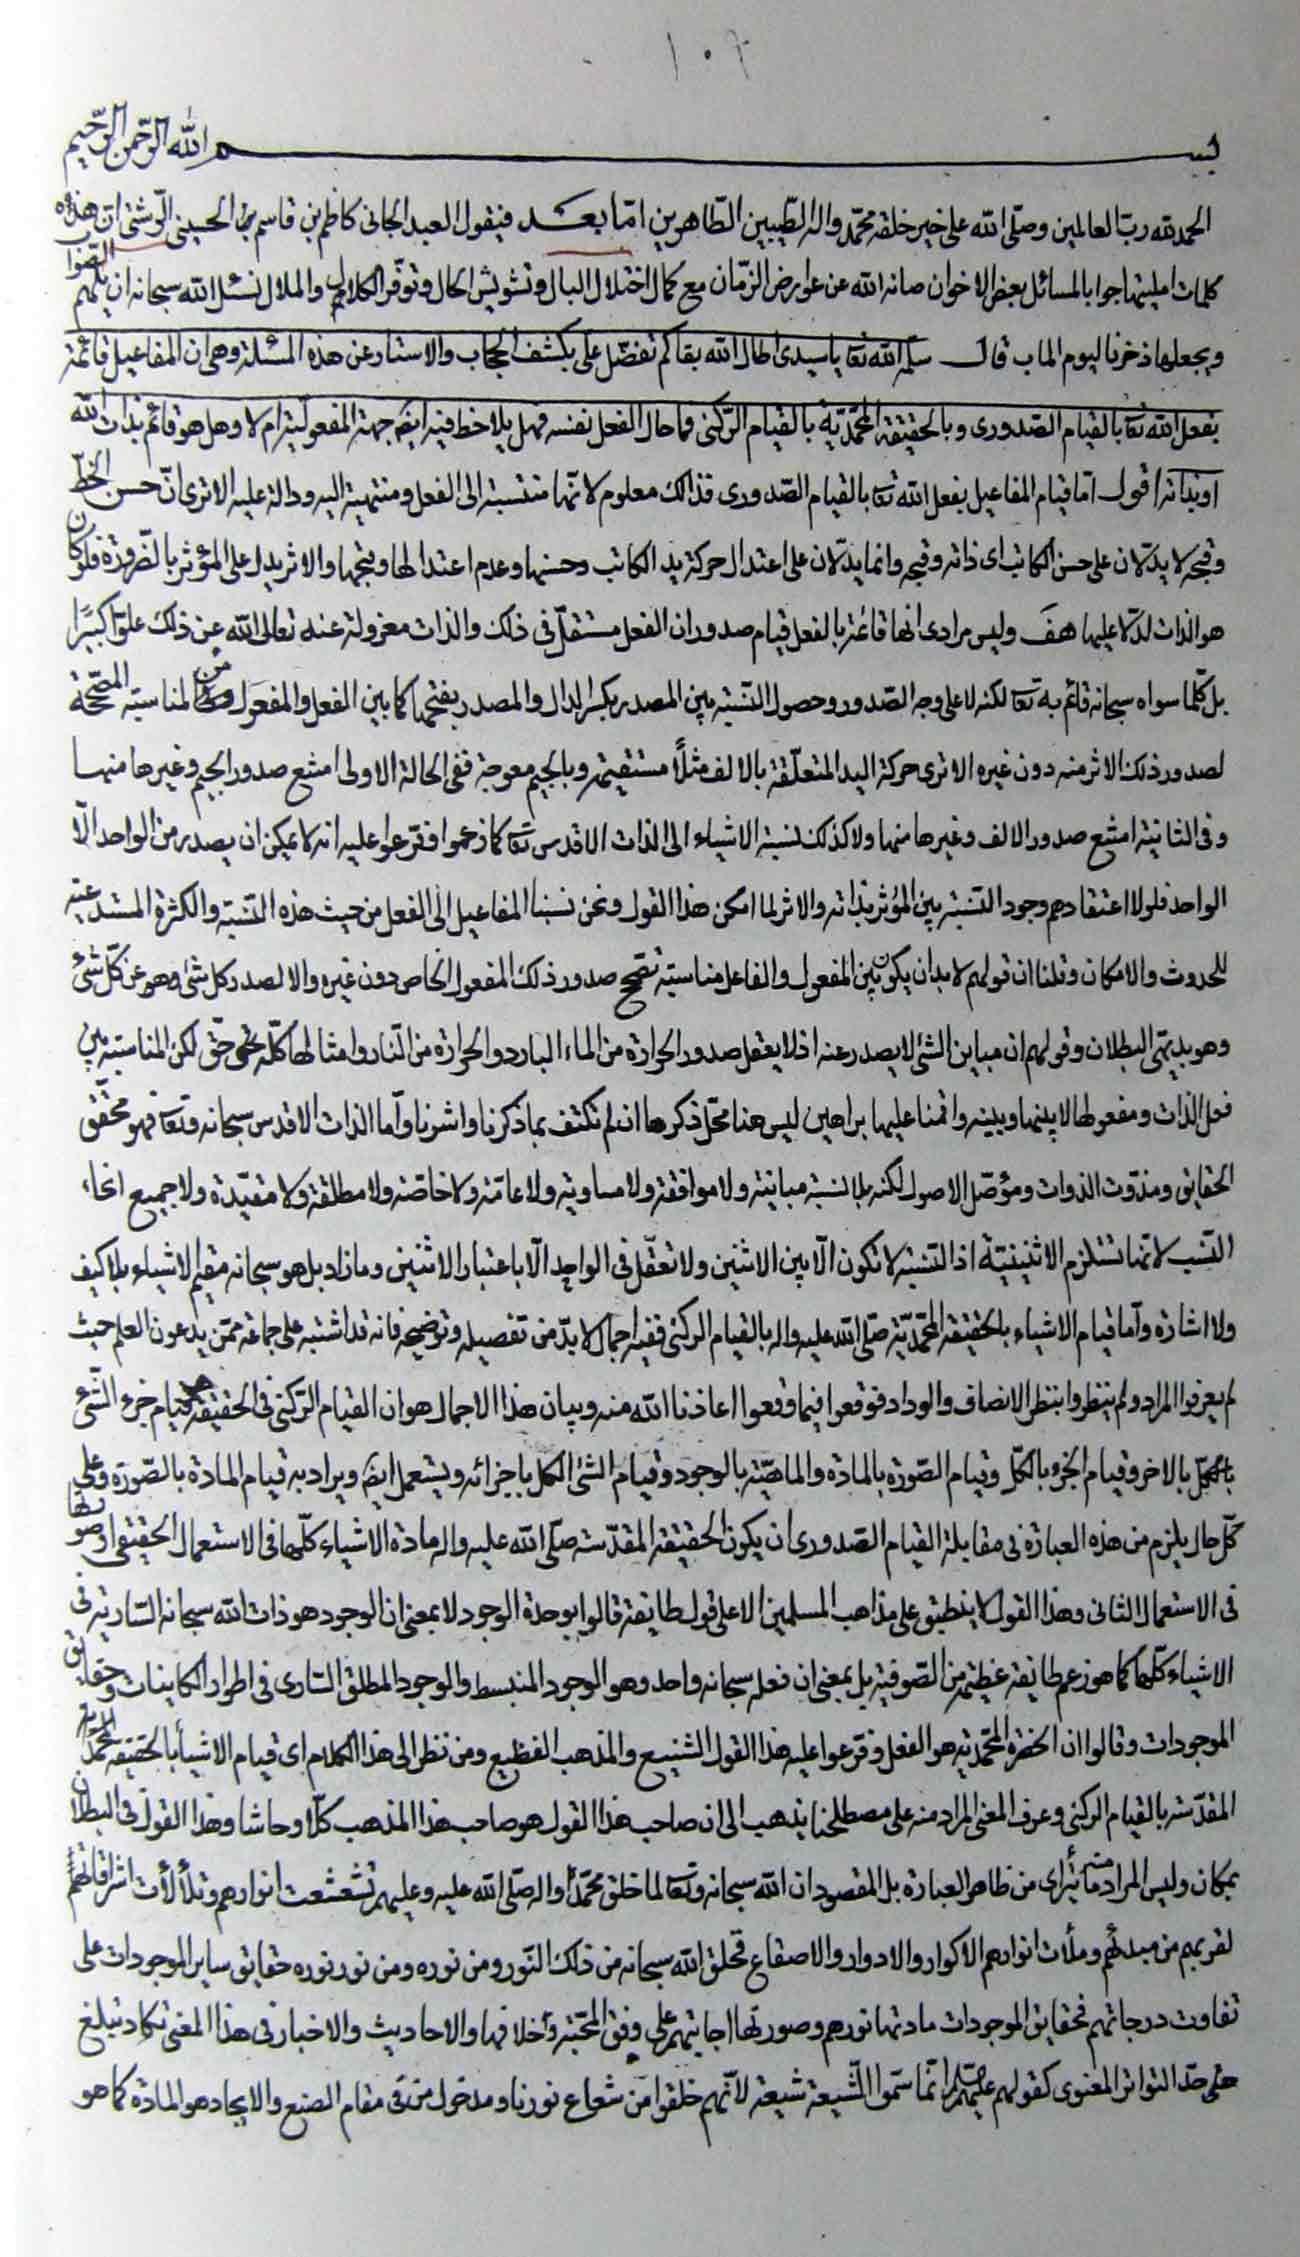 ١٠٢
بسم الله الرحمن الرحيم
الحمد لله رب العالمين وصلى الله على خير خلقه محمد واله الطيبين الطاهرين اما بعد فيقول العبد الجانى كاظم بن قاسم الحسينى الرشتى ان هذه
كلمات امليتها جوابا لمسائل بعض الاخوان صانه الله عن عوارض الزمان مع كمال اختلال البال وتشويش الحال وتوفر الكلال والملال نسئل الله سبحانه ان يلهم الصواب
ويجعلها ذخرنا ليوم الماب قال سلمه الله تعا يا سيدى اطال الله بقاكم تفضل على بكشف الحجاب والاستار عن هذه المسئلة وهى ان المفاعيل قائمة
بفعل الله تعا بالقيام الصدورى وبالحقيقة المحمدية بالقيام الركنى فما حال الفعل نفسه فهل يلاحظ فيه ايضا جهة المفعولية ام لا وهل هو قائم بذات الله
او بذاته اقول اما قيام المفاعيل بفعل الله تعا بالقيام الصدورى فذلك معلوم لانها منتسبة الى الفعل ومنتهية اليه ودالة عليه الا ترى ان حسن الخط
وقبحه لا يدلان على حسن الكاتب اى ذاته وقبحه وانما يدلان على اعتدال حركة يد الكاتب وحسنها وعدم اعتدالها وقبحها والاثر يدل على المؤثر بالضرورة فلو كان
هو الذات لدلا عليها هف وليس مرادى انها قائمة بالفعل قيام صدور ان الفعل مستقل فى ذلك والذات معزولة عنه تعالى الله عن ذلك علوا كبيرا
بل كلما سواه سبحانه قائم به تعا لكنه لا على وجه الصدور وحصول النسبة بين المصدر بكسر الدال والمصدر بفتحها كما بين الفعل والمفعول من المناسبة المصححة
لصدور ذلك الاثر منه دون غيره الا ترى حركة اليد المتعلقة بالالف مثلا مستقيمة وبالجيم معوجة ففى الحالة الاولى امتنع صدور الجيم وغيرها منها
وفى الثانية امتنع صدور الالف وغيرها منها ولا كذلك نسبة الاشياء الى الذات الاقدس تعا كما زعموا فقرعوا عليه انه لا يمكن ان يصدر من الواحد الا
الواحد فلولا اعتقادهم وجود النسبة بين المؤثر بذاته والاثر لما امكن هذا القول ونحن نسبنا المفاعيل الى الفعل من حيث هذه النسبة والكثرة المستدعية
للحدوث والامكان وقلنا ان قولهم لا بد ان يكون بين المفعول والفاعل مناسبة تصحح صدور ذلك المفعول الخاص دون غيره والا لصدر كل شئ عن كل شئ
وهو بديهى البطلان وقولهم ان مباين الشئ لا يصدر عنه اذ لا يعقل صدور الحرارة من الماء البارد والحرارة من النار وامثالها كله حق لكن المناسبة بين
فعل الذات ومفعولها لا بينها وبينه واقمنا عليها براهين ليس هنا محل ذكرها ان لم تكتف بما ذكرنا واشرنا واما الذات الاقدس سبحانه وتعا فهو محقق
الحقايق ومذوت الذوات ومؤصل الاصول لكنه بلا نسبة مباينة ولا موافقة ولا مساوية ولا عامة ولا خاصة ولا مطلقة ولا مقيدة ولا جميع انحاء
النسب لانها تستلزم الاثنينية اذ النسبة لا تكون الا بين الاثنين ولا تعقل فى الواحد الا باعتبار الاثنين وما زاد بل هو سبحانه مقيم الاشياء بلا كيف
ولا اشارة واما قيام الاشياء بالحقيقة المحمدية صلى الله عليه واله بالقيام الركنى ففيه اجمال لا بد من تفصيله وتوضيحه فانه قد اشتبه على جماعة ممن يدعون العلم حيث
لم يعرفوا المراد ولم ينظروا بنظر الانصاف والوداد فوقعوا فيما وقعوا اعاذنا الله منه وبيان هذا الاجمال هو ان القيام الركنى فى الحقيقة هو قيام جزء الشئ
بالاخر وقيام الجزء بالكل وقيام الصورة بالمادة والماهية بالوجود وقيام الشئ الكل باجزائه ويستعمل ايضا ويراد به قيام المادة بالصورة وعلى
كل حال يلزم من هذه العبارة فى مقابلة القيام الصدورى ان يكون الحقيقة المقدسة صلى الله عليه واله مادة الاشياء كلها فى الاستعمال الحقيقى او صورتها
فى الاستعمال الثانى وهذا القول لا ينطبق على مذاهب المسلمين الا على قول طايفة قالوا بوحدة الوجود لا بمعنى ان الوجود هو ذات الله سبحانه السارية فى
الاشياء كلها كما هو زعم طايفة من الصوفية بل بمعنى ان فعله سبحانه واحد وهو الوجود المنبسط والوجود المطلق السارى فى اطوار الكاينات وحقايق
الموجودات وقالوا ان الحضرة المحمدية هو الفعل وفرعوا عليه هذا القول الشنيع والمذهب الفظيع ومن نظر الى هذا الكلام اى قيام الاشياء بالحقيقة المحمدية
المقدسة بالقيام الركنى وعرف المعنى المراد منه على مصطلحنا يذهب الى ان صاحب هذا القول هو صاحب هذا المذهب كلا وحاشا وهذا القول فى البطلان
بمكان وليس المراد منه ما يترای من ظاهر العبارة بل المقصود ان الله سبحانه وتعا لما خلق محمدا واله صلى الله عليه وعليهم تشعشعت انوارهم وتلألأت اشراقاتهم
لقربهم من مبدئهم وملأت انوارهم الاكوار والادوار والاصقاع فخلق الله سبحانه من ذلك النور ومن نوره ومن نور نوره حقايق ساير الموجودات على
تفاوت درجاتهم فحقايق الموجودات مادتها نورهم وصورتها اجابتهم على وفق المحبة وخلافها والاحاديث والاخبار فى هذا المعنى تكاد تبلغ
حتى حد التواتر المعنوى كقولهم عليهم السلام انما سموا الشيعة شيعة لانهم خلقوا من شعاع نورنا ومدخول من فى مقام الصنع والايجاد هو المادة كما هو